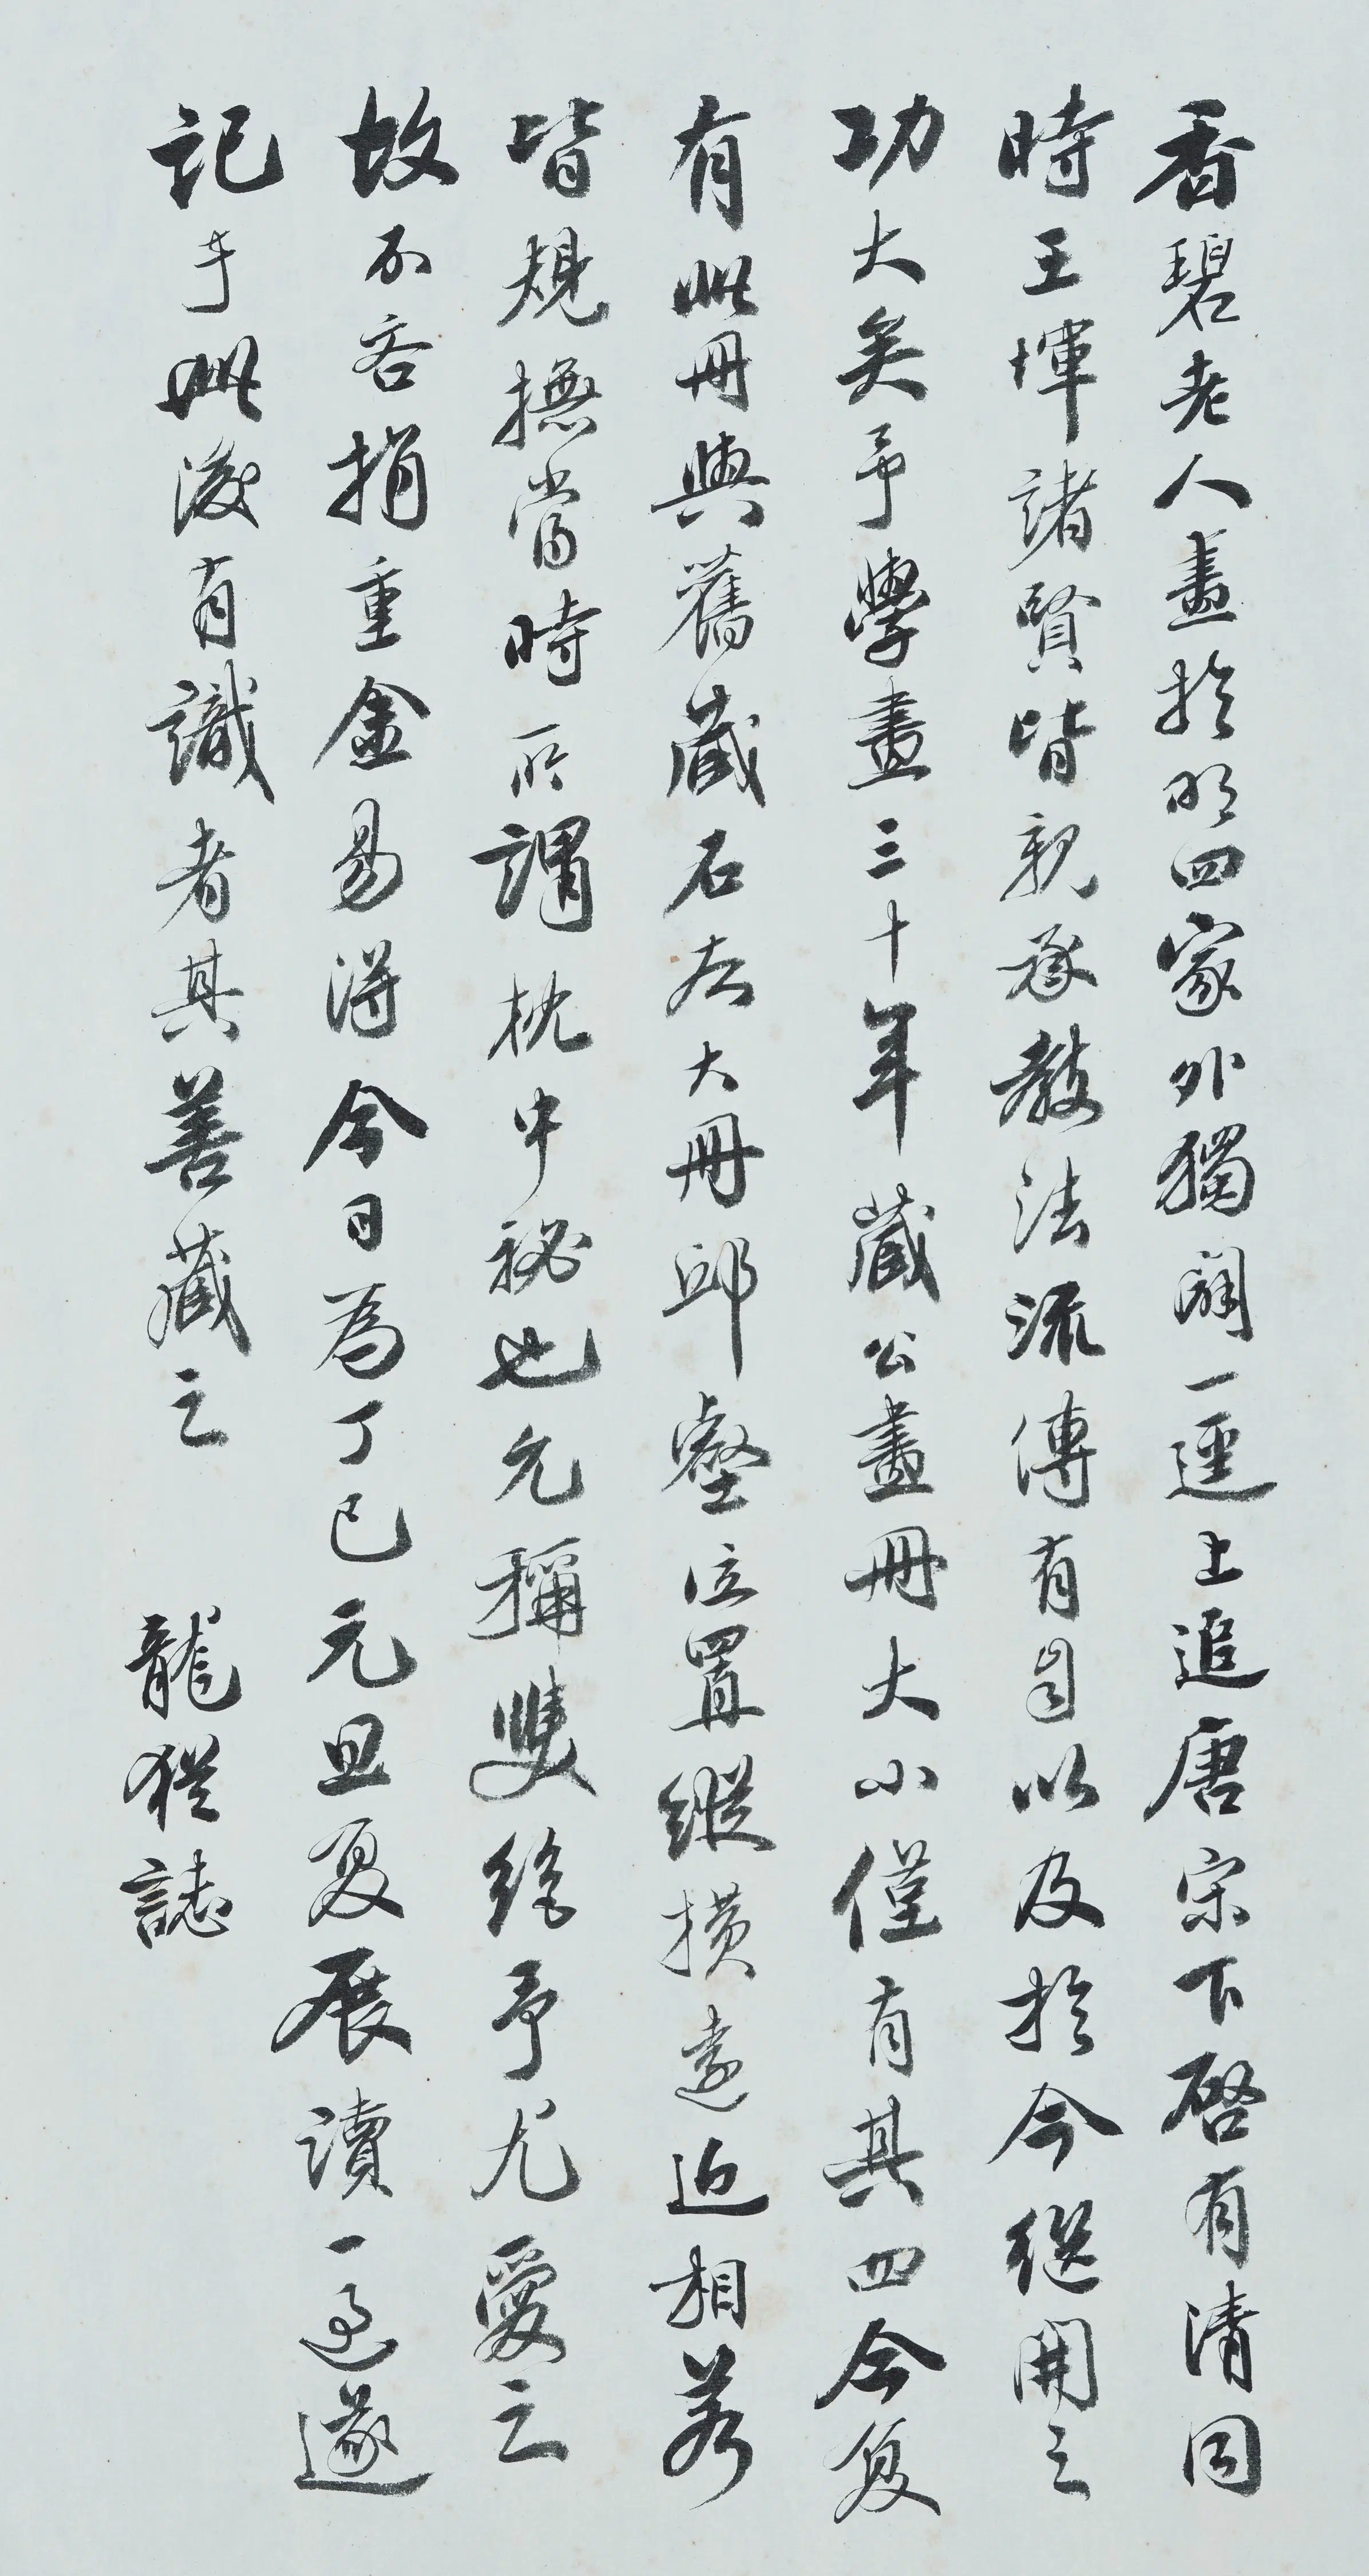 香碧老人畫於明四家外獨闢一逕上追唐宋下啓有清同
時王惲諸賢皆親承教法流傳有自以及於今繼開之
功大矣予學畫三十年藏公畫冊大小僅有其四今复
有此冊與舊藏石太大冊邱壑位置縱橫遠近相若
皆規撫當時所謂枕中秘也允稱雙絕予尤愛之
故不吝捐重金易得今日為丁巳元旦复展讀一過遂
記于此後有識者其善藏之 龍猶誌